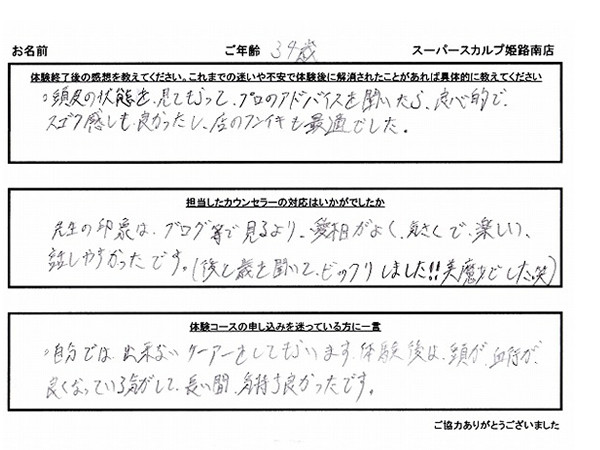 お名前 ご年齢 34歳 スーパースカルプ姫路南店
体験終了後の感想を教えてください。これまでの迷いや不安で体験後に解消されたことがあれば具体的に教えてください
頭皮の状態を、見てもらって、プロのアドバイスを聞いたら、良心的で、
スゴク感じも良かったし、店のフンイキも最適でした。
担当したカウンセラーの対応はいかがでしたか
先生の印象は、ブログ等で見るより、愛相がよく、気さくで、楽しい、
話しやすかったです。(後で歳を聞いて、ビックリしました!!美魔女でした笑)
体験コースの申し込みを迷っている方に一言
自分では、出来ないケーアーをしてもらいます。体験後は、頭が、血行が、
良くなっている気がして、長い間、気持ち良かったです。
ご協力ありがとうございました